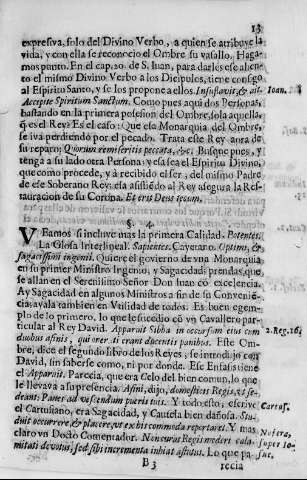 13
expresiva, solo del Divino Verbo, a quien se atribuye la
vida, y con ella se reconocio el Ombre su vasallo. Haga-
mos punto. En el cap. 20. de S. Iuan, para darles ese alien-
to el mismo Divino Verbo a los Dicipulos, tiene consigo
al Espiritu Santo, y se los propone a ellos. Insuflavit, & ait. Ioan.
Accipite Spiritum Sanctum. Como pues aqui dos Personas,
bastando en la primera posesion del Ombre, sola aquella,
q̃ es el Rey? Es el caso: Que esta Monarquia del Ombre,
se iva perdiendo por el pecado. Trata este Rey aora de
su reparo: Quorum remiseritis peccata, &c. Busque pues, y
tenga a su lado otra Persona: y esa sea el Espiritu Divino,
que como procede, y a recibido el ser, del mismo Padre
de ese Soberano Rey: esa asistiẽdo al Rey asegura la Res-
tauracion de su Corona. Et eris Deus ipsum.
§.
VEamos si incluye mas la primera Calidad. Potentes.
La Glosa Interlineal. Sapientes. Cayetano. Optimi, &
sagacissimi ingenii. Quiere el govierno de vna Monarquia
en su primer Ministro Ingenio, y Sagacidad: prendas, que
se allan en el Serenisimo Señor Don Iuan cõ excelencia.
Ay Sagacidad en algunos Ministros a fin de su Convenié-
cia; ayala tambien en Vtilidad de todos. Es buen egem-
plo de lo primero, lo que le sucedio cõ vn Cavallero par-
ticular al Rey David. Apparuit Siba in occursum eius cum 2. Reg. 16.
duobus asinis, qui onerati erant ducentis panibus. Este Om-
bre, dice el segundo libro de los Reyes, se introdujo con
David, sin saberse como, ni por donde. Ese Enfasi tiene
el Apparuit. Parecia, que era Celo del bien comun, lo que
le llevava a su presencia. Asini, dijo, domesticis Regis, vt se-
deant: Panes ad vescendum pueris tuis. Y todo esto, escrive Cartus.
el Cartuliano, era Sagacidad, y Cautela bien dañosa. Stu-
duit occurrere & placere, vt ex hoc commoda reportaret. Y mas
claro vn Docto Comentador. Non curas Regis mederi cala- super lo-
mitati devotus, sed sibi incrementa inhiat astutus. Lo que pa- suc.
B 3
recia